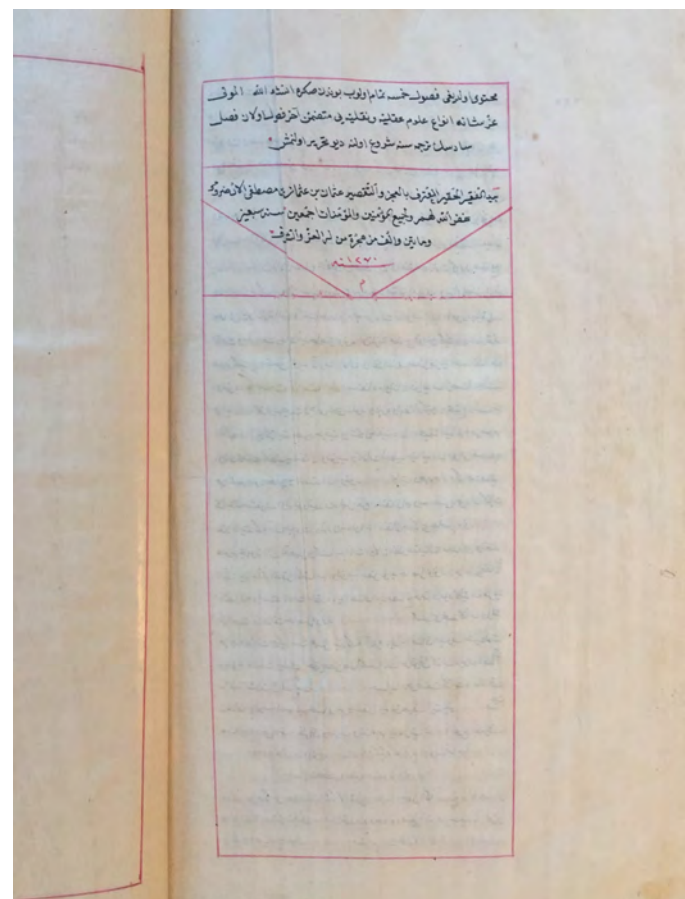 محتوى اولديغى فصول خمسه تمام اولوب بوندن صكره انشاء الله الموفى
عز شانه انواع علوم عقليه ونقليه يى متضمن آخر فصول اولان فصل
سادسك ترجمه سنه شروع اولنه ديو تحرير اولنمش
بيد الفقير الحقير المعترف بالعجز والتقصير عثمان بن عثمان بن مصطفى
غفر الله لهم ولجميع المؤمنين والمؤمنات اجمعين لسنة سبعين
ومايتين والف من هجرة من له العز والشرف
سنه ١٢٧٠
م